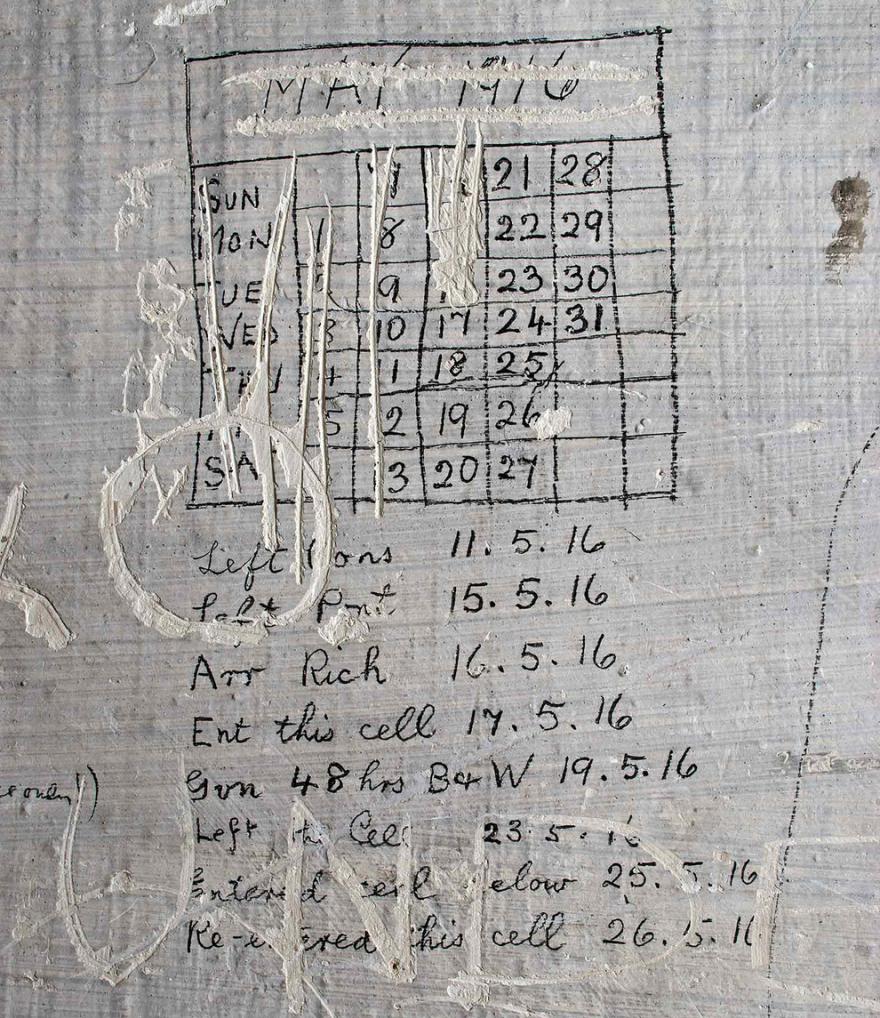 MAY 1916
SUN 7 21 28
MON 1 8 22 29
TUE 9 23 30
WED 3 10 17 24 31
THU 4 11 18 25
5 12 19 26
SAT 13 20 27
Left Cons 11. 5. 16
Left Pont 15. 5. 16
Arr Rich 16. 5. 16
Ent this cell 17. 5. 16
Gvn 48 hrs B & W 19. 5. 16
Left this Cell 23 5. 16
Entered cell below 25. 5. 16
Re-entered this cell 26. 5. 16